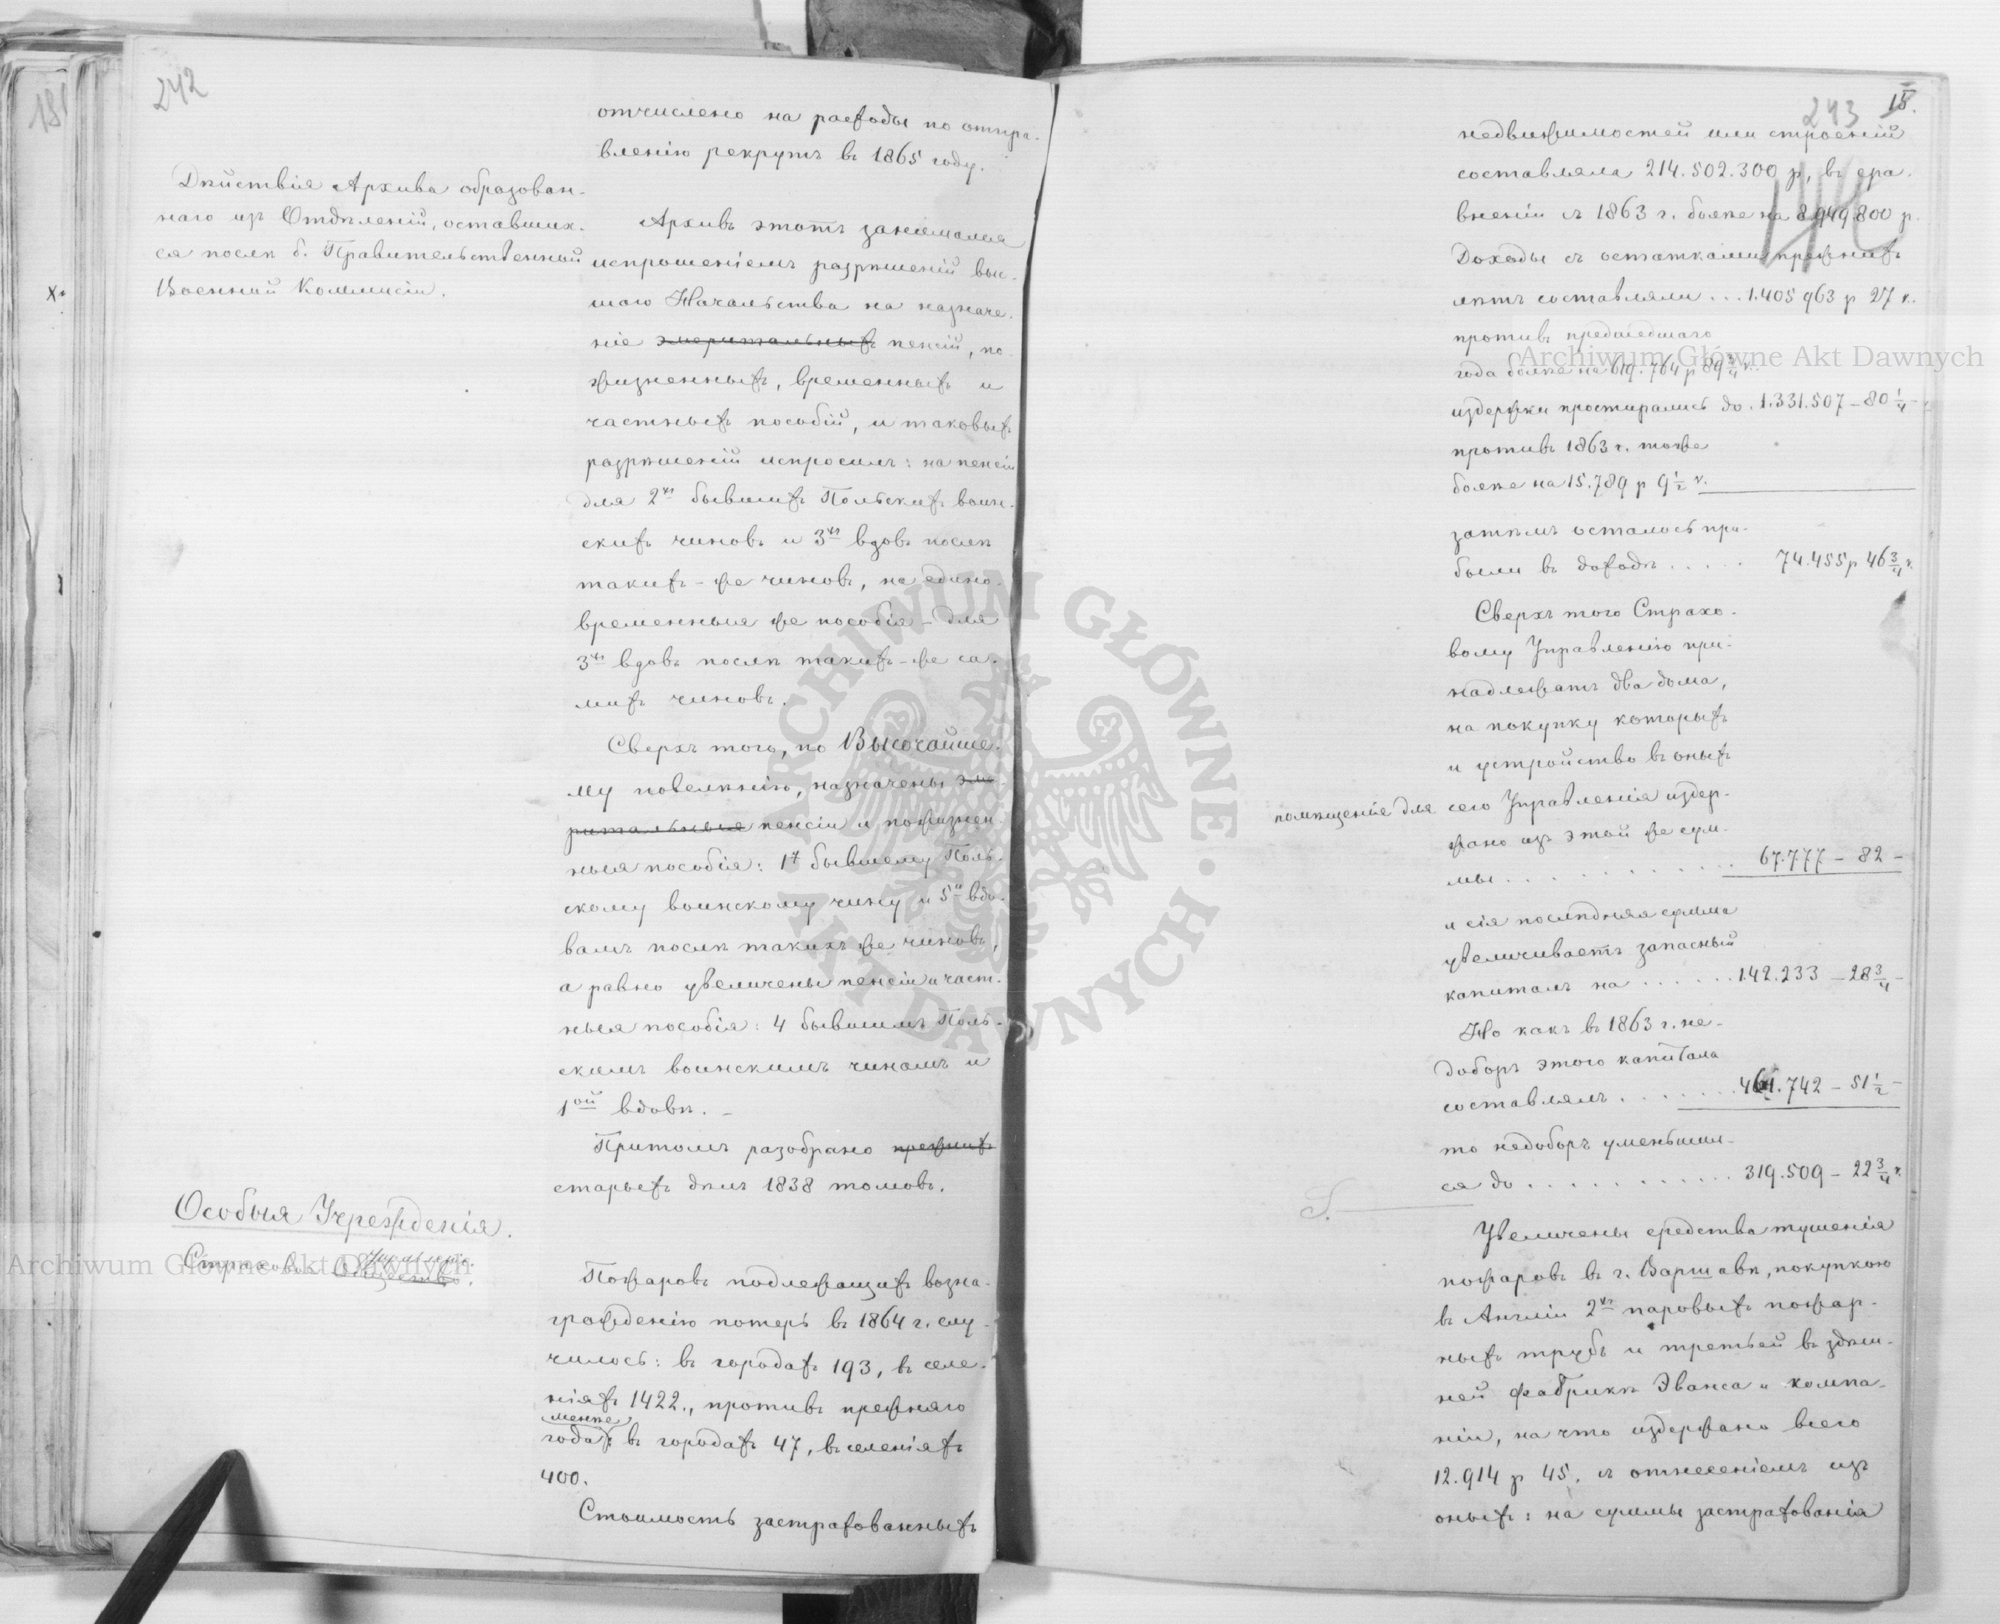 242
отчислено на расходы по отпра-
вленію рекрутъ въ 1865 году.
Дѣйствія Архива образован-
наго изъ Отдѣленій, оставших-
ся послѣ б. Правительственной
Военной Коммисіи.
Архивъ этотъ занимался
испрошеніемъ разрѣшеній выс-
шаго Начальства на назначе-
ніе эмеритальныхъ пенсій, по-
жизненныхъ, временныхъ и
частныхъ пособій, и таковыхъ
разрѣшеній испросилъ: на пенсіи
для 2хъ бывшихъ Польскихъ воин-
скихъ чиновъ и 3хъ вдовъ послѣ
такихъ-же чиновъ, на едино-
временныя же пособія - для
3хъ вдовъ послѣ такихъ-же са-
михъ чиновъ.
Сверхъ того, по Высочайше-
му повелѣнію, назначены эме-
ритальныя пенсіи и пожизнен-
ныя пособія: 1му бывшему Поль-
скому воинскому чину и 5и вдо-
вамъ послѣ такихъ же чиновъ,
а равно увеличены пенсіи и част-
ныя пособія: 4 бывшимъ Поль-
скимъ воинскимъ чинамъ и
1ой вдовѣ. -
Притомъ разобрано прежнихъ
старыхъ дѣлъ 1838 томовъ.
Особыя Учрежденія.
Страховое Общество.
Управленіе.
Пожаровъ подлежащихъ возна-
гражденію потерь въ 1864 г. слу-
чилось: въ городахъ 193, въ селе-
ніяхъ 1422, противъ прежняго
менѣе
года: въ городахъ 47, въ селеніяхъ
400.
Стоимость застрахованныхъ
243
недвижимостей или строеній
составляла 214.502.300 р, въ сра-
вненіи съ 1863 г. болѣе на 8.949.800 р.
Доходы съ остатками прежнихъ
лѣтъ составляли ... 1.405.963 р 27 к.
противъ предшедшаго
года болѣе на 619.764 р 89 3/4 к.
издержки простирались до . 1.331.507 - 80 1/4 -
противъ 1863 г. тоже
болѣе на 15.789 р 9 1/2 к.
затѣмъ осталось при-
были въ доходѣ ..... 74.455 р 46 3/4 к.
Сверхъ того Страхо-
вому Управленію при-
надлежатъ два дома,
на покупку которыхъ
и устройство въ оныхъ
помѣщенія для сего Управленія издер-
жано изъ этой же сум-
мы ........... 67.777 - 82 -
и сія послѣдняя сумма
увеличиваетъ запасный
капиталъ на ...... 142.233 - 28 3/4 -
Но какъ въ 1863 г. не-
доборъ этого капитала
составлялъ ....... 461.742 - 51 1/2 -
то недоборъ уменьшил-
ся до ............ 319.509 - 22 3/4 к.
Увеличены средства тушенія
пожаровъ въ г. Варшавѣ, покупкою
въ Англіи 2хъ паровыхъ пожар-
ныхъ трубъ и третьей въ здѣш-
ней фабрикѣ Эванса и компа-
ніи, на что издержано всего
12.914 р 45, съ отнесеніемъ изъ
оныхъ: на суммы застрахованія
Archiwum Główne Akt Dawnych
Archiwum Główne Akt Dawnych
ARCHIWUM GŁÓWNE · AKT DAWNYCH ·